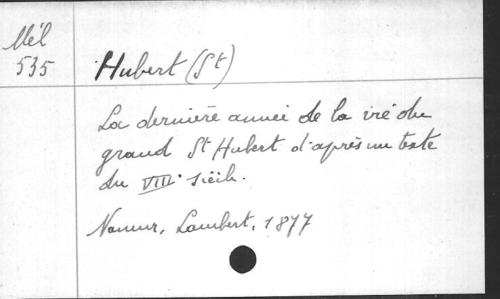 Mél
535
Hubert (St)
La dernière année de la vie du
grand St Hubert d'après un texte
du VIIIe siècle.
Namur, Lambert, 1877